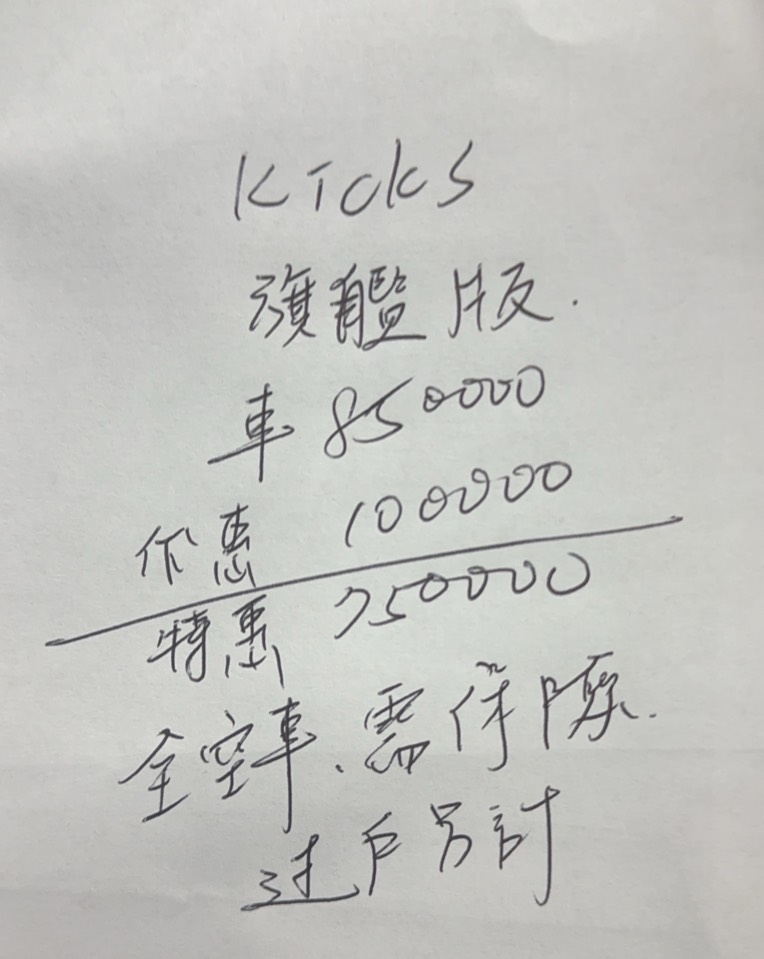 Kicks
旗艦版.
車 850000
優惠 100000
特惠 750000
全空車.需保險.
过戶另計